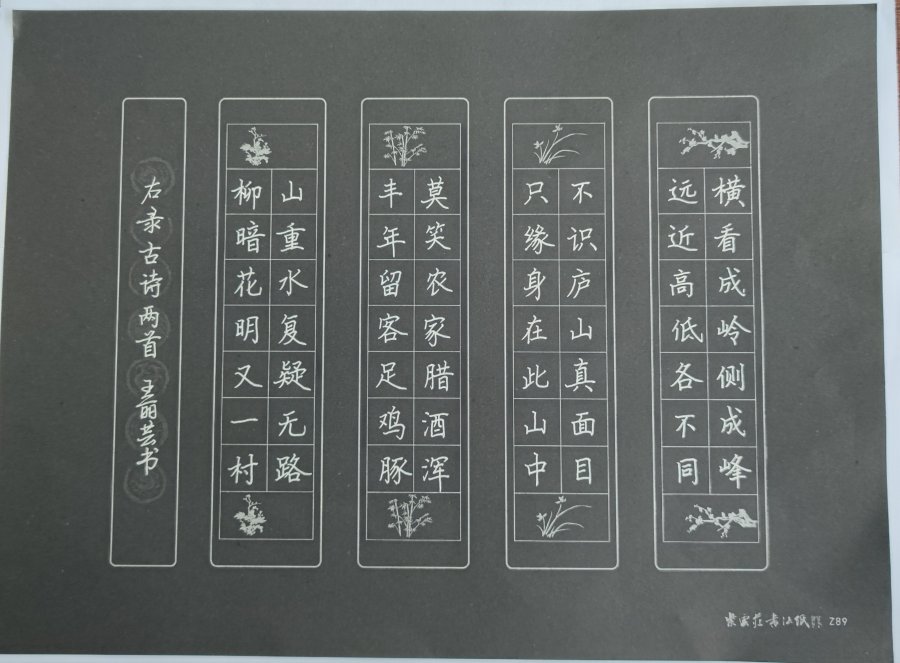 横看成岭侧成峰
远近高低各不同
不识庐山真面目
只缘身在此山中
莫笑农家腊酒浑
丰年留客足鸡豚
山重水复疑无路
柳暗花明又一村
右录古诗两首 王丽芸书
Z89